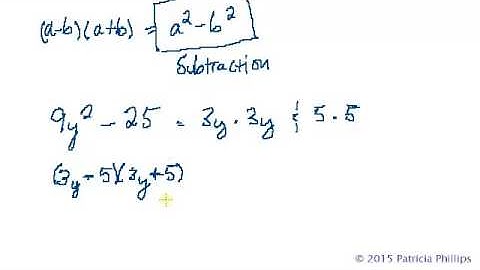 (a-b)(a+b) = a² - b²
Subtraction
9y² - 25 = 3y · 3y & 5 · 5
(3y - 5)(3y + 5)
© 2015 Patricia Phillips